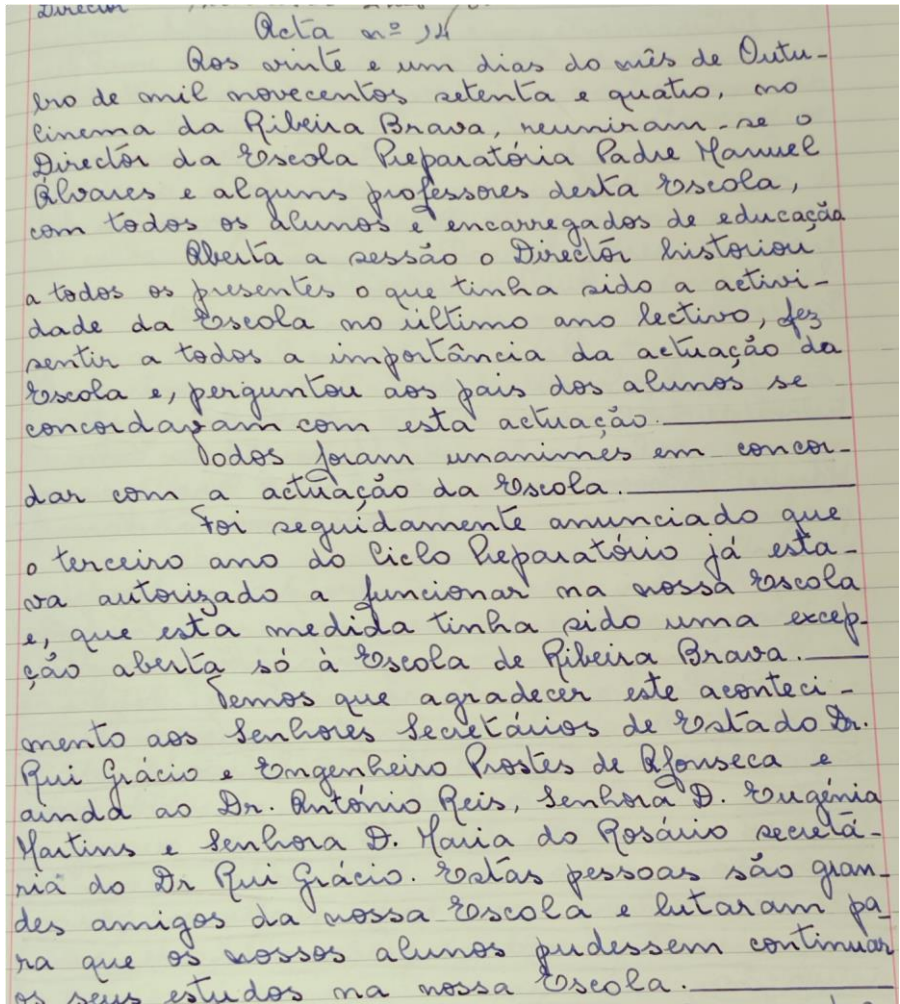 Director
Acta nº 14
Aos vinte e um dias do mês de Outu-
bro de mil novecentos setenta e quatro, no
Cinema da Ribeira Brava, reuniram-se o
Director da Escola Preparatória Padre Manuel
Álvares e alguns professores desta Escola,
com todos os alunos e encarregados de educação
Aberta a sessão o Director historiou
a todos os presentes o que tinha sido a activi-
dade da Escola no último ano lectivo, fez
sentir a todos a importância da actuação da
Escola e, perguntou aos pais dos alunos se
concordavam com esta actuação.
Todos foram unanimes em concor-
dar com a actuação da Escola.
Foi seguidamente anunciado que
o terceiro ano do Ciclo Preparatório já esta-
va autorizado a funcionar na nossa Escola
e, que esta medida tinha sido uma excep-
ção aberta só à Escola de Ribeira Brava.
Temos que agradecer este aconteci-
mento aos Senhores Secretários de Estado Dr.
Rui Grácio e Engenheiro Prostes de Afonseca e
ainda ao Dr. António Reis, Senhora D. Eugénia
Martins e Senhora D. Maria do Rosário secretá-
ria do Dr Rui Grácio. Estas pessoas são gran-
des amigos da nossa Escola e lutaram pa-
ra que os nossos alunos pudessem continuar
os seus estudos na nossa Escola.